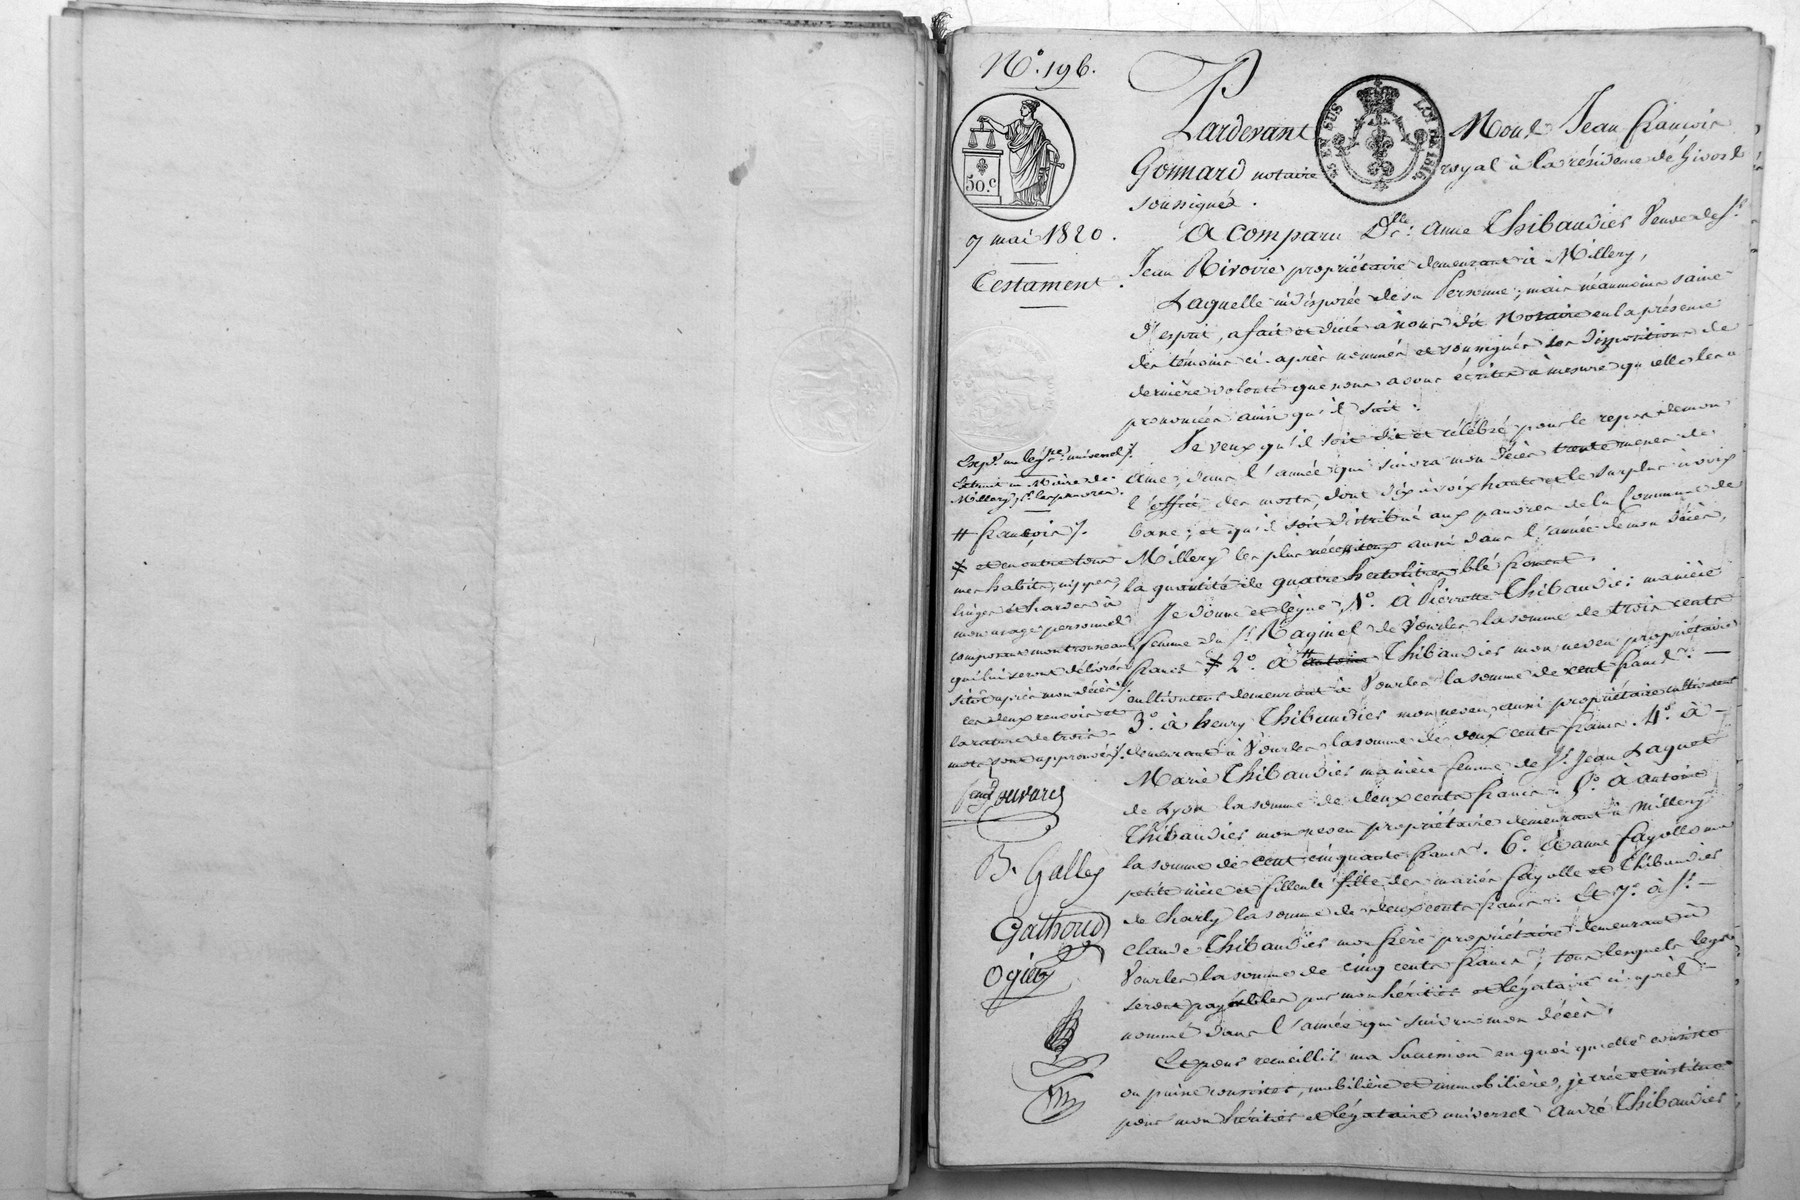 N.° 196.
50.c
25 EN SUS
LOI DE 1816.
9 mai 1820.
Testament.
Pardevant Nous Jean françois
Gonnard notaire royal à la résidence de Givors
soussigné.
A comparu D.lle anne Thibaudier Veuve de S.r
Jean Rivoire propriétaire demeurant à Millery,
Laquelle indisposée de sa Personne; mais néanmoins saine
d'esprit, a fait et dicté à nous dit Notaire en la présence
des témoins ci-après nommés et soussignés ses dispositions de
dernière volonté que nous avons écrites à mesure qu'elle les a
prononcées ainsi qu'il suit:
Je veux qu'il soit dit et célébré pour le repos de mon
ame, dans l'année qui suivra mon décès trente messes de
l'office des morts, dont dix à voix haute et le surplus à voix
basse; et qu'il soit distribué aux pauvres de la Commune de
Millery les plus nécessiteux aussi dans l'année de mon décès,
la quantité de quatre hectolitres blé froment.
Je donne et lègue, 1.° à Pierrette Thibaudier ma nièce
femme du S.r Raginel de Vourles la somme de trois cents
francs # 2.° à antoine Thibaudier mon neveu propriétaire
cultivateur demeurant à Vourles la somme de cent francs. —
3.° à henry Thibaudier mon neveu, aussi propriétaire cultivateur
demeurant à Vourles la somme de deux cents francs. 4.° à —
Marie Thibaudier ma nièce femme de S.r Jean Laquet
de Lyon la somme de deux cents francs. 5.° à antoine
Thibaudier mon neveu propriétaire demeurant à Millery
la somme de cent cinquante francs. 6.° à anne fayolle ma
petite nièce et filleule fille des mariés fayolle et Thibaudier
de Charly la somme de deux cents francs. Et 7.° à S.r —
Claude Thibaudier mon frère propriétaire demeurant à
Vourles la somme de cinq cents francs; tous lesquels legs
seront payables par mon héritier et légataire ci-après —
nommé dans l'année qui suivra mon décès.
Et pour recueillir ma succession en quoi qu'elle consiste
ou puisse consister, mobilière et immobilière, je crée et institue
pour mon héritier et légataire universel André Thibaudier
Millery p.r les pauvres.
# françois /.
# et en outre tous
mes habits, nippes,
linges et hardes à
mon usage personnel
composant mon trousseau
qui lui seront délivrés
sitôt après mon décès /.
les deux renvois et
la rature de trois
mots sont approuvés /.
B. Galley
Gathoud